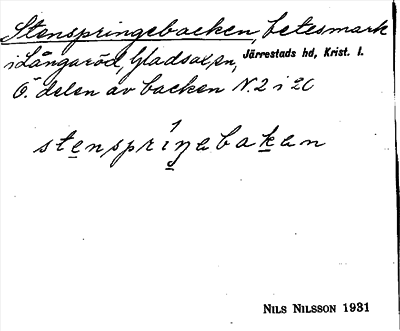 Stenspringebacken, betesmark
i Långaröd, Gladsax sn, Järrestads hd, Krist. l.
Ö. delen av backen N. 2 i 2C
stenspriŋebakan
NILS NILSSON 1931